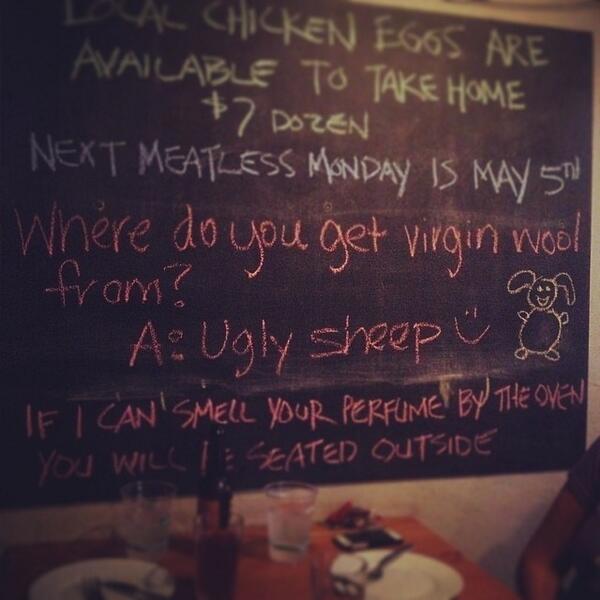 LOCAL CHICKEN EGGS ARE
AVAILABLE TO TAKE HOME
$7 DOZEN
NEXT MEATLESS MONDAY IS MAY 5TH
Where do you get virgin wool
from?
A: Ugly sheep
IF I CAN SMELL YOUR PERFUME BY THE OVEN
YOU WILL BE SEATED OUTSIDE